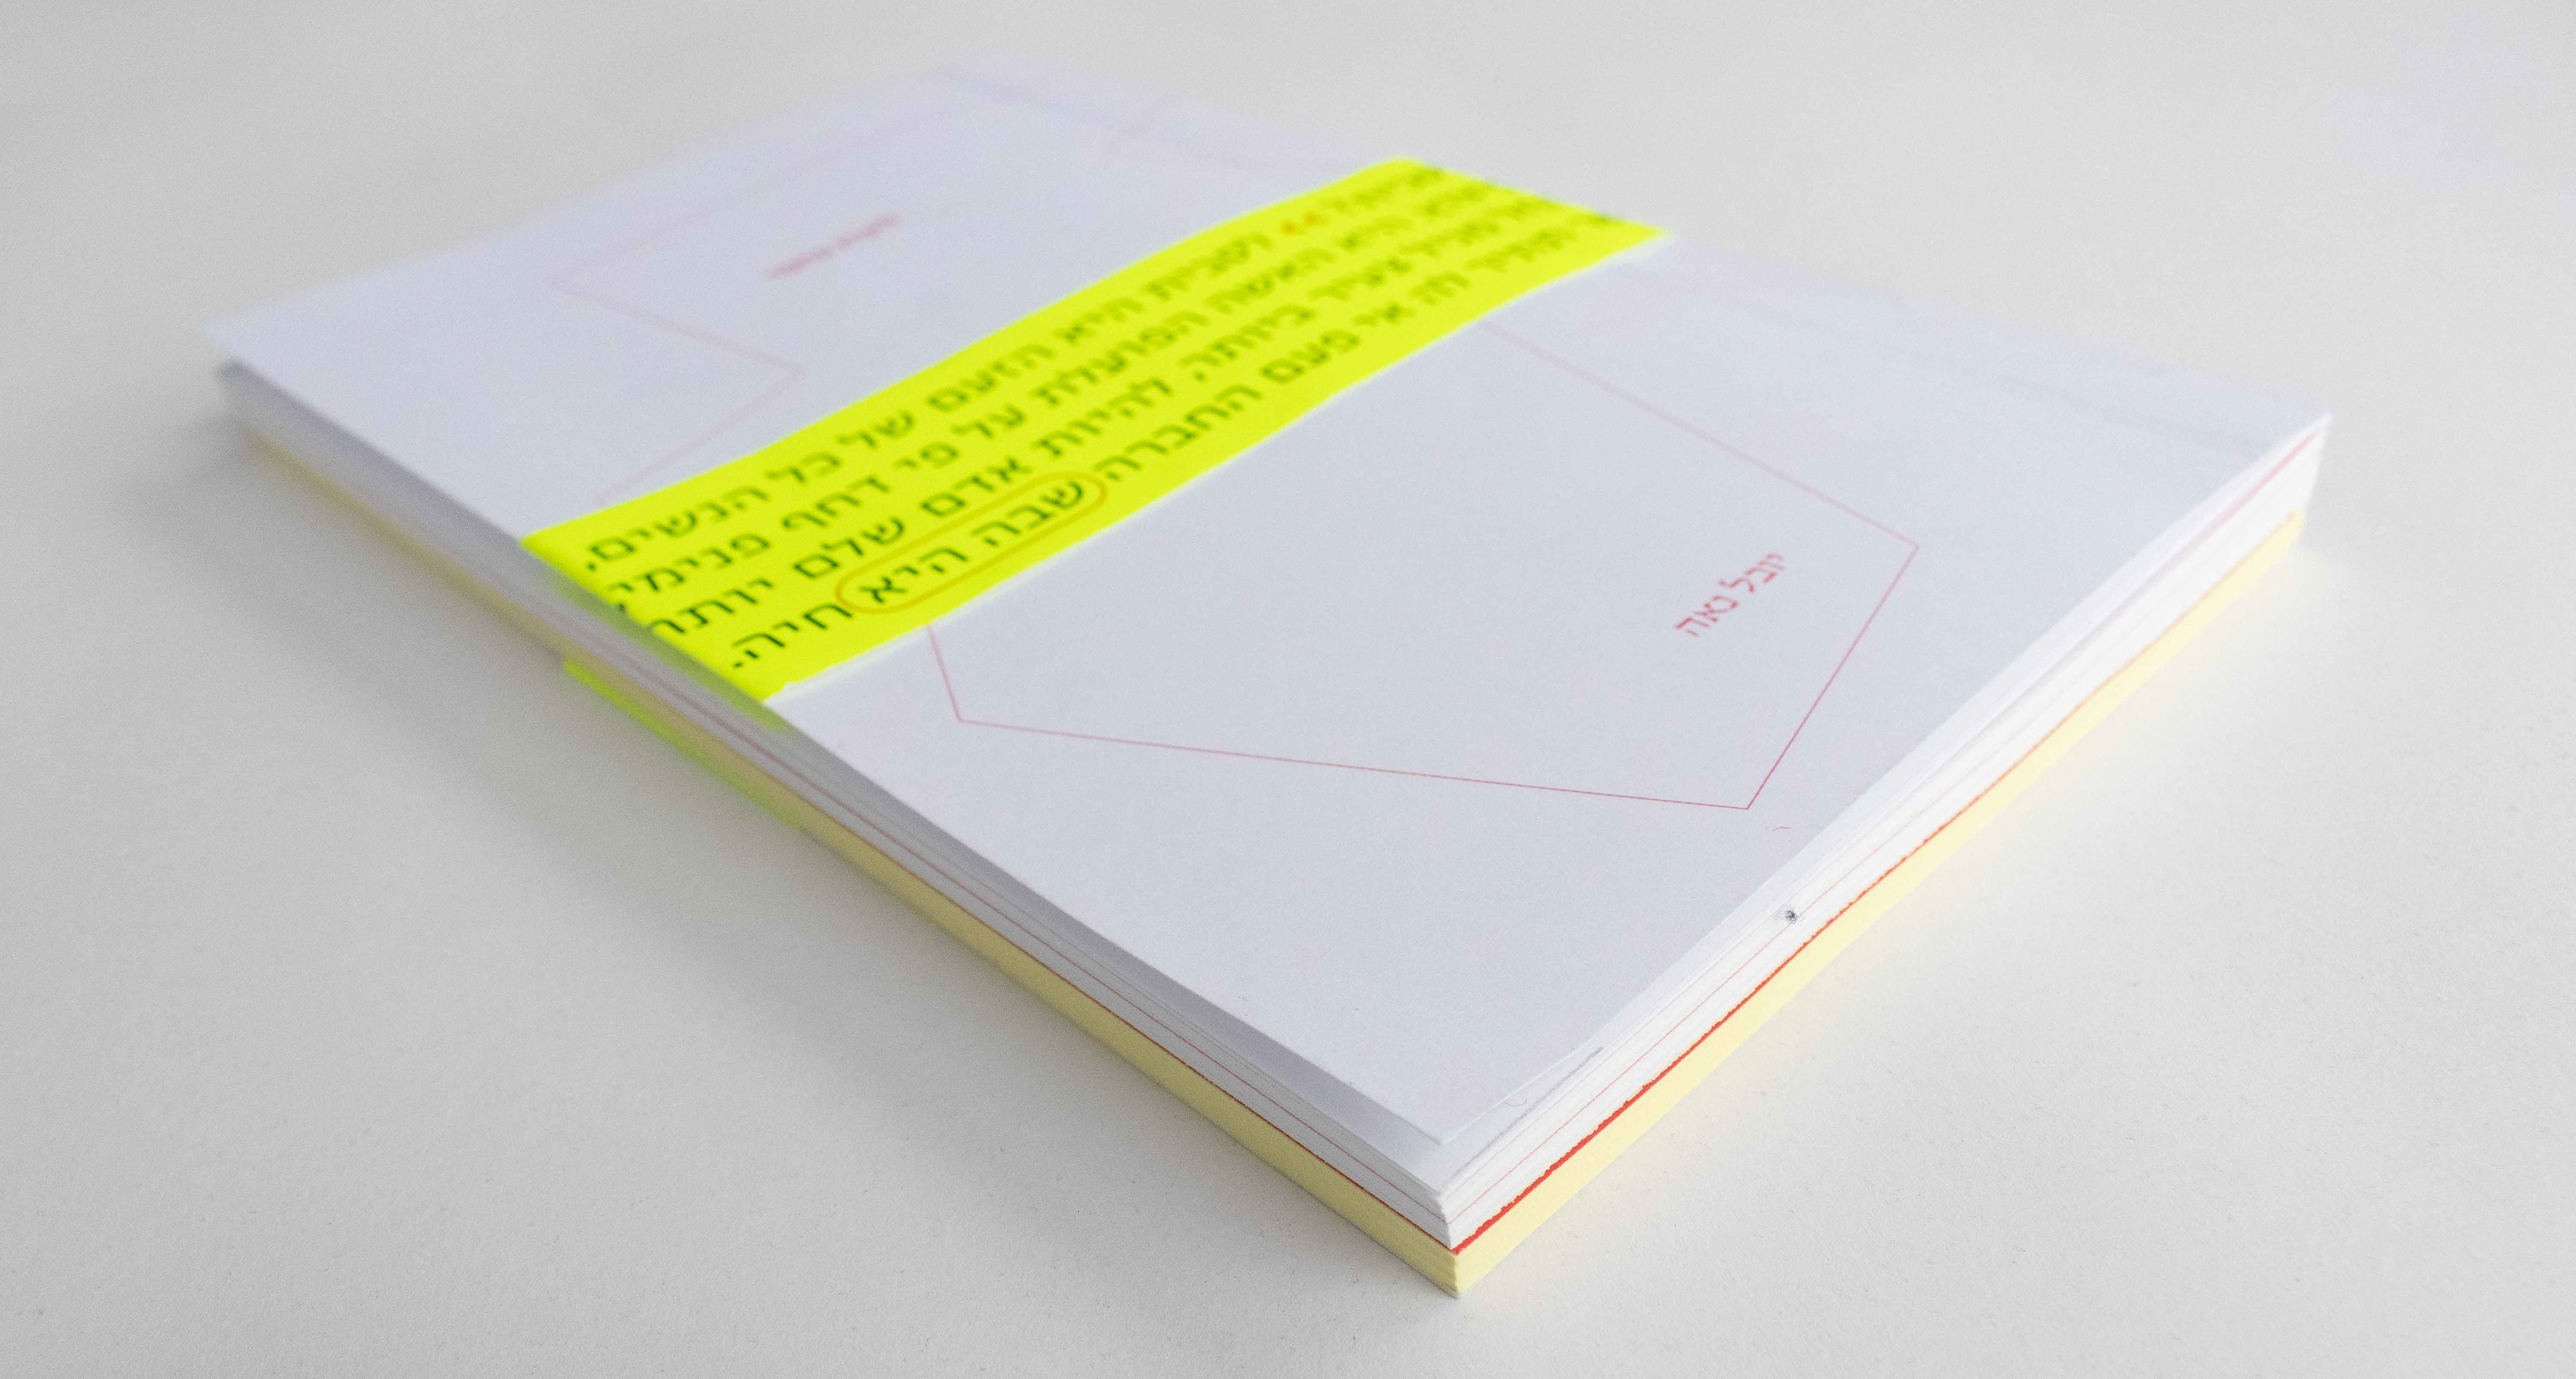 לסבית היא הזעם של כל הנשים,
היא האשה הפועלת על פי דחף פנימי,
מגיל צעיר ביותר, להיות אדם שלם יותר
לה אי פעם החברה שבה היא חיה.
יובל נאה